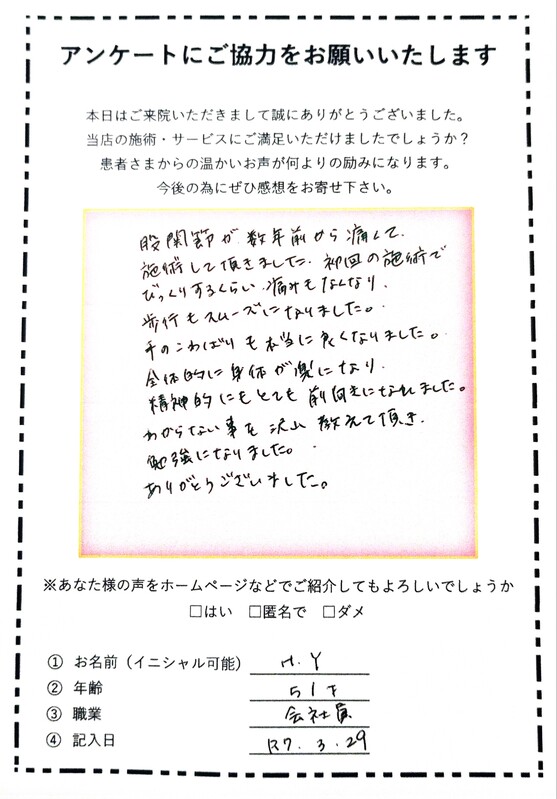 アンケートにご協力をお願いいたします
本日はご来院いただきまして誠にありがとうございました。
当店の施術・サービスにご満足いただけましたでしょうか？
患者さまからの温かいお声が何よりの励みになります。
今後の為にぜひ感想をお寄せ下さい。
股関節が数年前から痛くて、
施術して頂きました。初回の施術で
びっくりするくらい、痛みもなくなり、
歩行もスムーズになりました。
手のこわばりも本当に良くなりました。
全体的に身体が楽になり、
精神的にもとても前向きになれました。
わからない事を沢山教えて頂き、
勉強になりました。
ありがとうございました。
※あなた様の声をホームページなどでご紹介してもよろしいでしょうか
□はい □匿名で □ダメ
① お名前（イニシャル可能） H.Y
② 年齢 51才
③ 職業 会社員
④ 記入日 R7.3.29